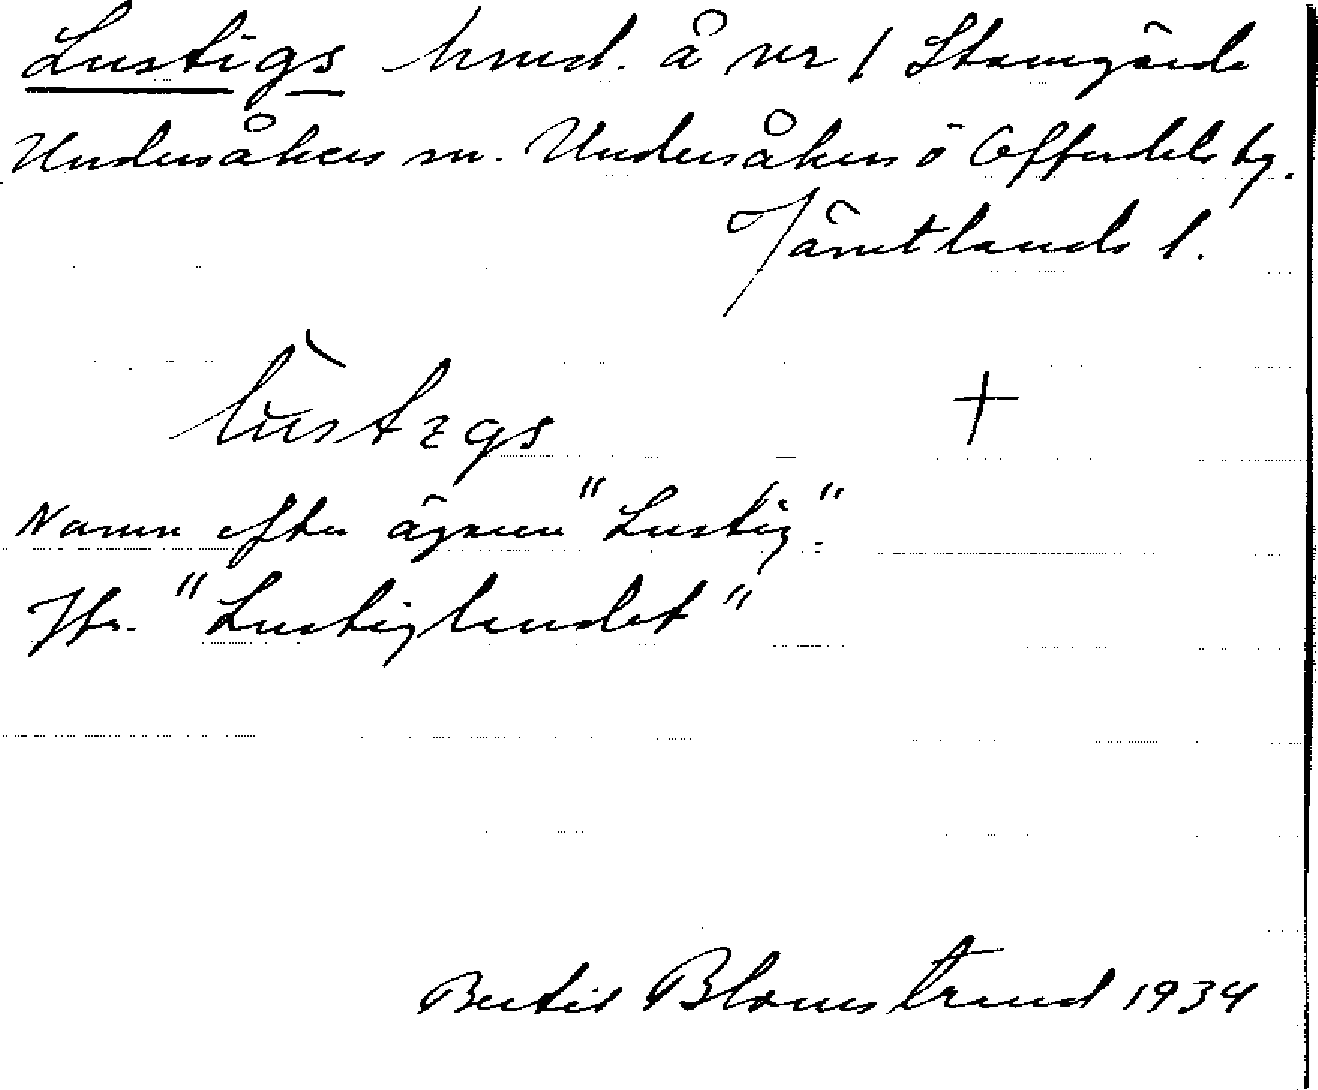 Lustigs hmd. å nr 1 Stamgärde
Undersåkers sn. Undersåkers o Offerdals tg.
Jämtlands l.
lùstıgs +
Namn efter ägaren "Lustig".
Jfr. "Lustiglandet"
Bertil Blomstrand 1934